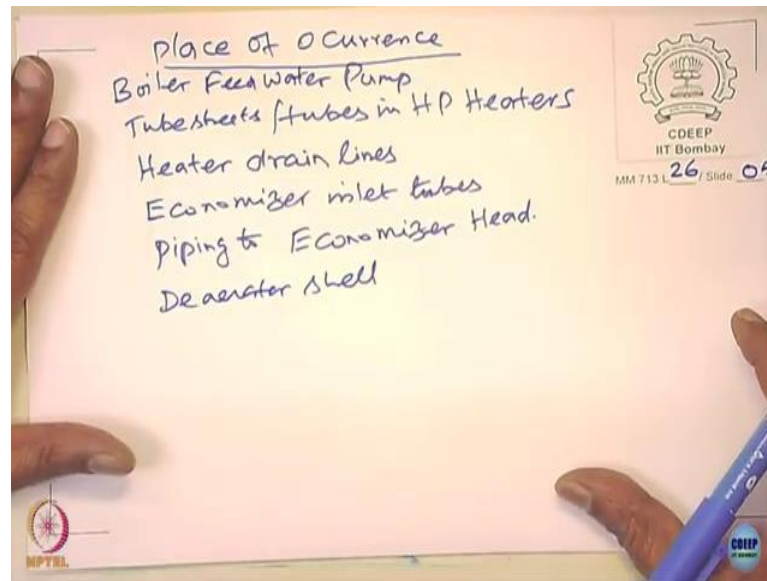 Place of Ocurrence
Boiler Feed Water Pump
Tubesheets/tubes in HP Heaters
Heater drain lines
Economizer inlet tubes
Piping to Economizer Head.
Deaerater shell
CDEEP
IIT Bombay
MM 713 L 26 / Slide 04
NPTEL
CDEEP
IIT BOMBAY